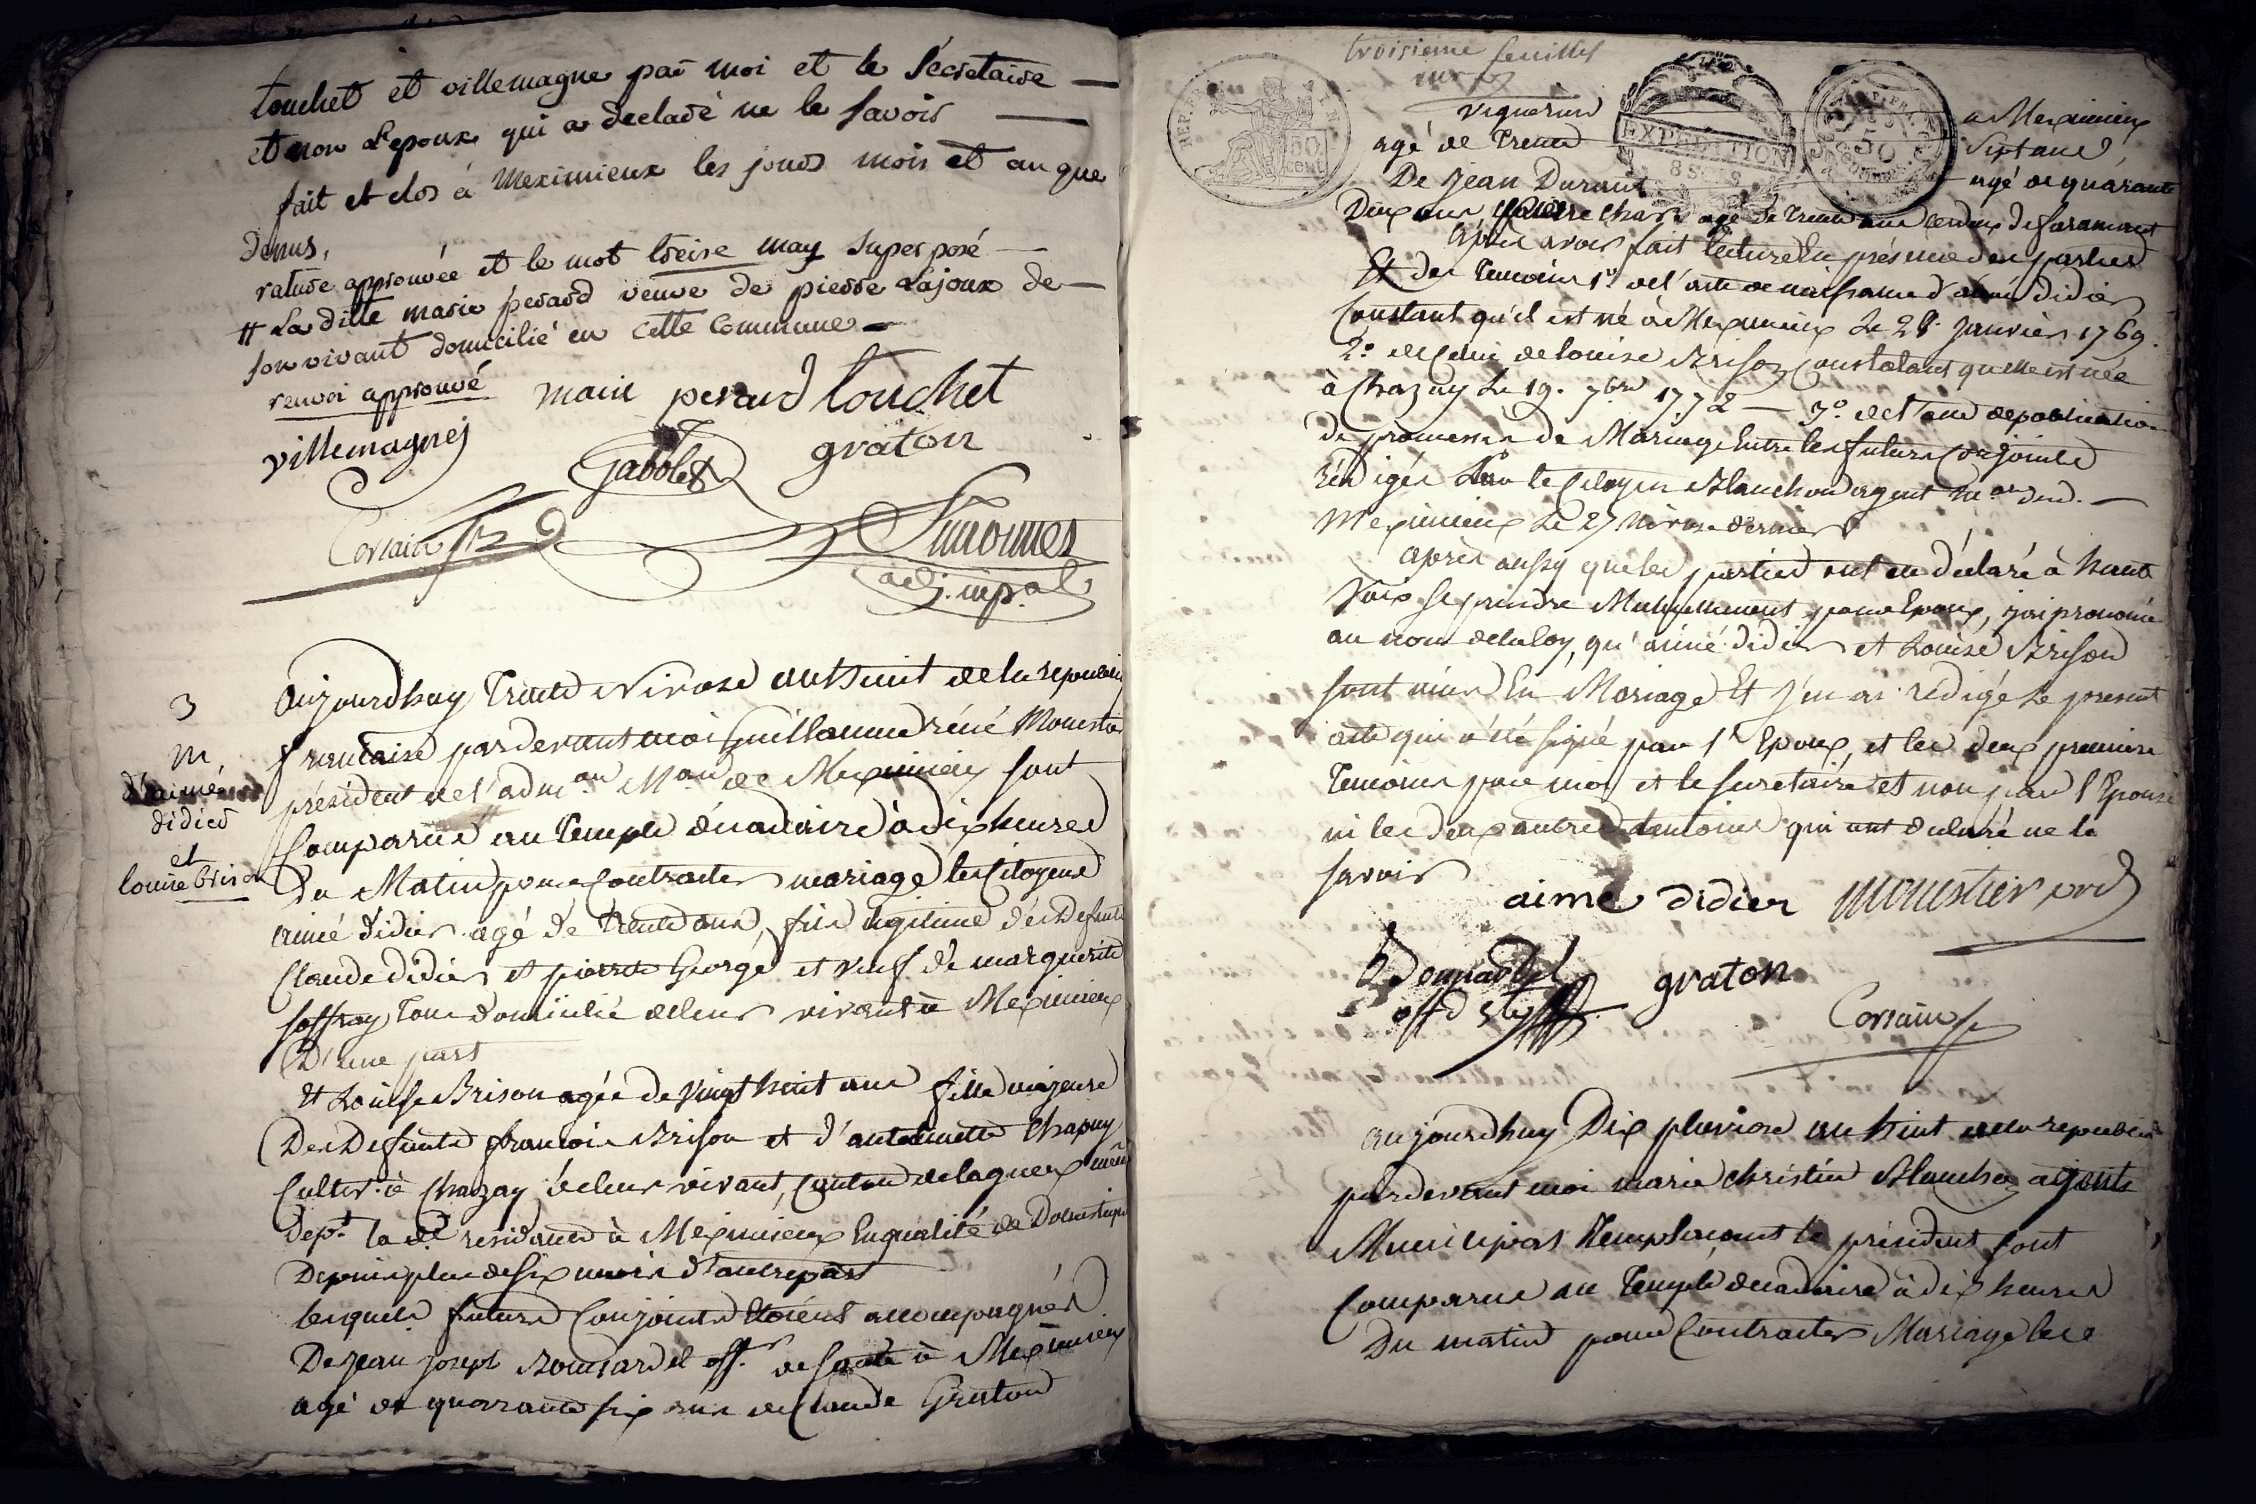 touchet et villemagne par moi et le Sécretaire
et non L'epoux qui a declaré ne le savoir
fait et clos à Meximieux les jours mois et an que
dessus,
rature approuvée et le mot treise may superposé
# La ditte marie perard veuve de pierre Lajoux de
son vivant domicilié en cette Commune
renvoi approuvé
marie perard touchet
villemagne
Gabolet
graton
Corsain
Simonnet
adj. mp.al
3
M,
d'aimé
didier
et
louise brison
aujourdhuy trente Nivose an huit de la republique
francaise pardevant moi Guillaume réné Monestier
président de l'adm.on M.on de Meximieux sont
Comparus au Temple décadaire à dix heures
du Matin pour Contracter mariage les Citoyens
aimé didier agé de trente ans, fils legitime des Defunts
Claude didier et pierrette George et veuf de marguerite
joffray tous domicilié de leur vivant à Meximieux
D'une part
Et Louise Brison agée de vingt huit ans fille majeure
Des Defunts francois Brison et d'antoinette Chapuy
Cultiv. à Chazay de leur vivant, Canton de lagnieux même
Dep.t la d.e residante à Meximieux En qualité de Domestique
Depuis plus de six mois d'autre part
lesquels futurs Conjoints étoient accompagnés
De Jean joseph Bonnardel off.r de santé à Meximieux
agé de quarante six ans de Claude Graton
troisieme feuillet
REP. FRA.
50
CENT.
EXPEDITION
50
vigneron à Meximieux
agé de trente Sept ans,
De Jean Durant agé de quarante
Deux ans, agé de trente ans tous deux de faramant
après avoir fait lecture En présence des parties
Et des Temoins 1.° de l'acte de naissance d'aimé didier
Constant qu'il est né à Meximieux Le 28 Janvier 1769.
2.° de Celui de louise Brison Constatant qu'elle est née
à Chazay Le 19. 7bre 1772 — 3.° de l'acte de publication
de promesses de Mariage Entre les futurs Conjoints
Rédigée Par le Citoyen Blanchon agent M.al dud.
Meximieux Le 27 Nivose dernier
après aussy que les parties ont eu déclaré à haute
Voix se prendre Mutuellement pour Epoux, j'ai prononcé
au nom de la loy, qu'aimé didier et Louise Brison
sont unis En Mariage Et j'en ai rédigé Le present
acte qui a été signé par l'Epoux, et les deux premiers
Temoins par moi et le secretaire et non par l'Epouse
ni les deux autres temoins qui ont declaré ne le
savoir
aimé didier monestier prd
Bonnardel
offr
graton
Corsain
aujourdhuy Dix pluviose an huit de la republique
pardevant moi marie christin Blanchon agents
Municipal Remplacant le président sont
Comparus au Temple decadaire à dix heures
Du matin pour Contracter Mariage les